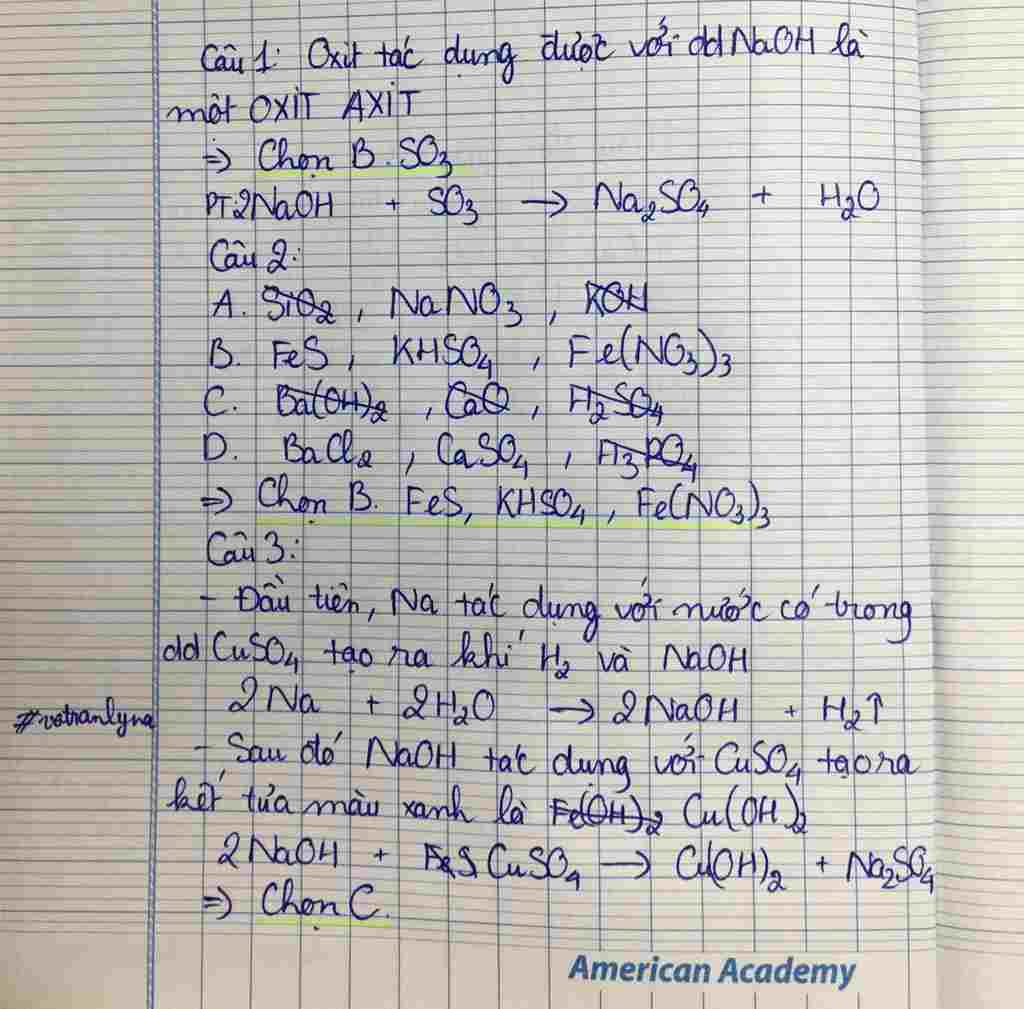 Câu 1: Oxit tác dụng được với dd NaOH là
một OXIT AXIT
=> Chọn B. SO3
PT: 2NaOH + SO3 → Na2SO4 + H2O
Câu 2:
A. SiO2, NaNO3, KOH
B. FeS, KHSO4, Fe(NO3)3
C. Ba(OH)2, CaO, H2SO4
D. BaCl2, CaSO4, H3PO4
=> Chọn B. FeS, KHSO4, Fe(NO3)3
Câu 3:
- Đầu tiên, Na tác dụng với nước có trong
dd CuSO4 tạo ra khí H2 và NaOH
2Na + 2H2O → 2NaOH + H2↑
#votranlyna
- Sau đó NaOH tác dụng với CuSO4 tạo ra
kết tủa màu xanh là Fe(OH)2 Cu(OH)2
2NaOH + CuSO4 → Cu(OH)2 + Na2SO4
=> Chọn C.
American Academy